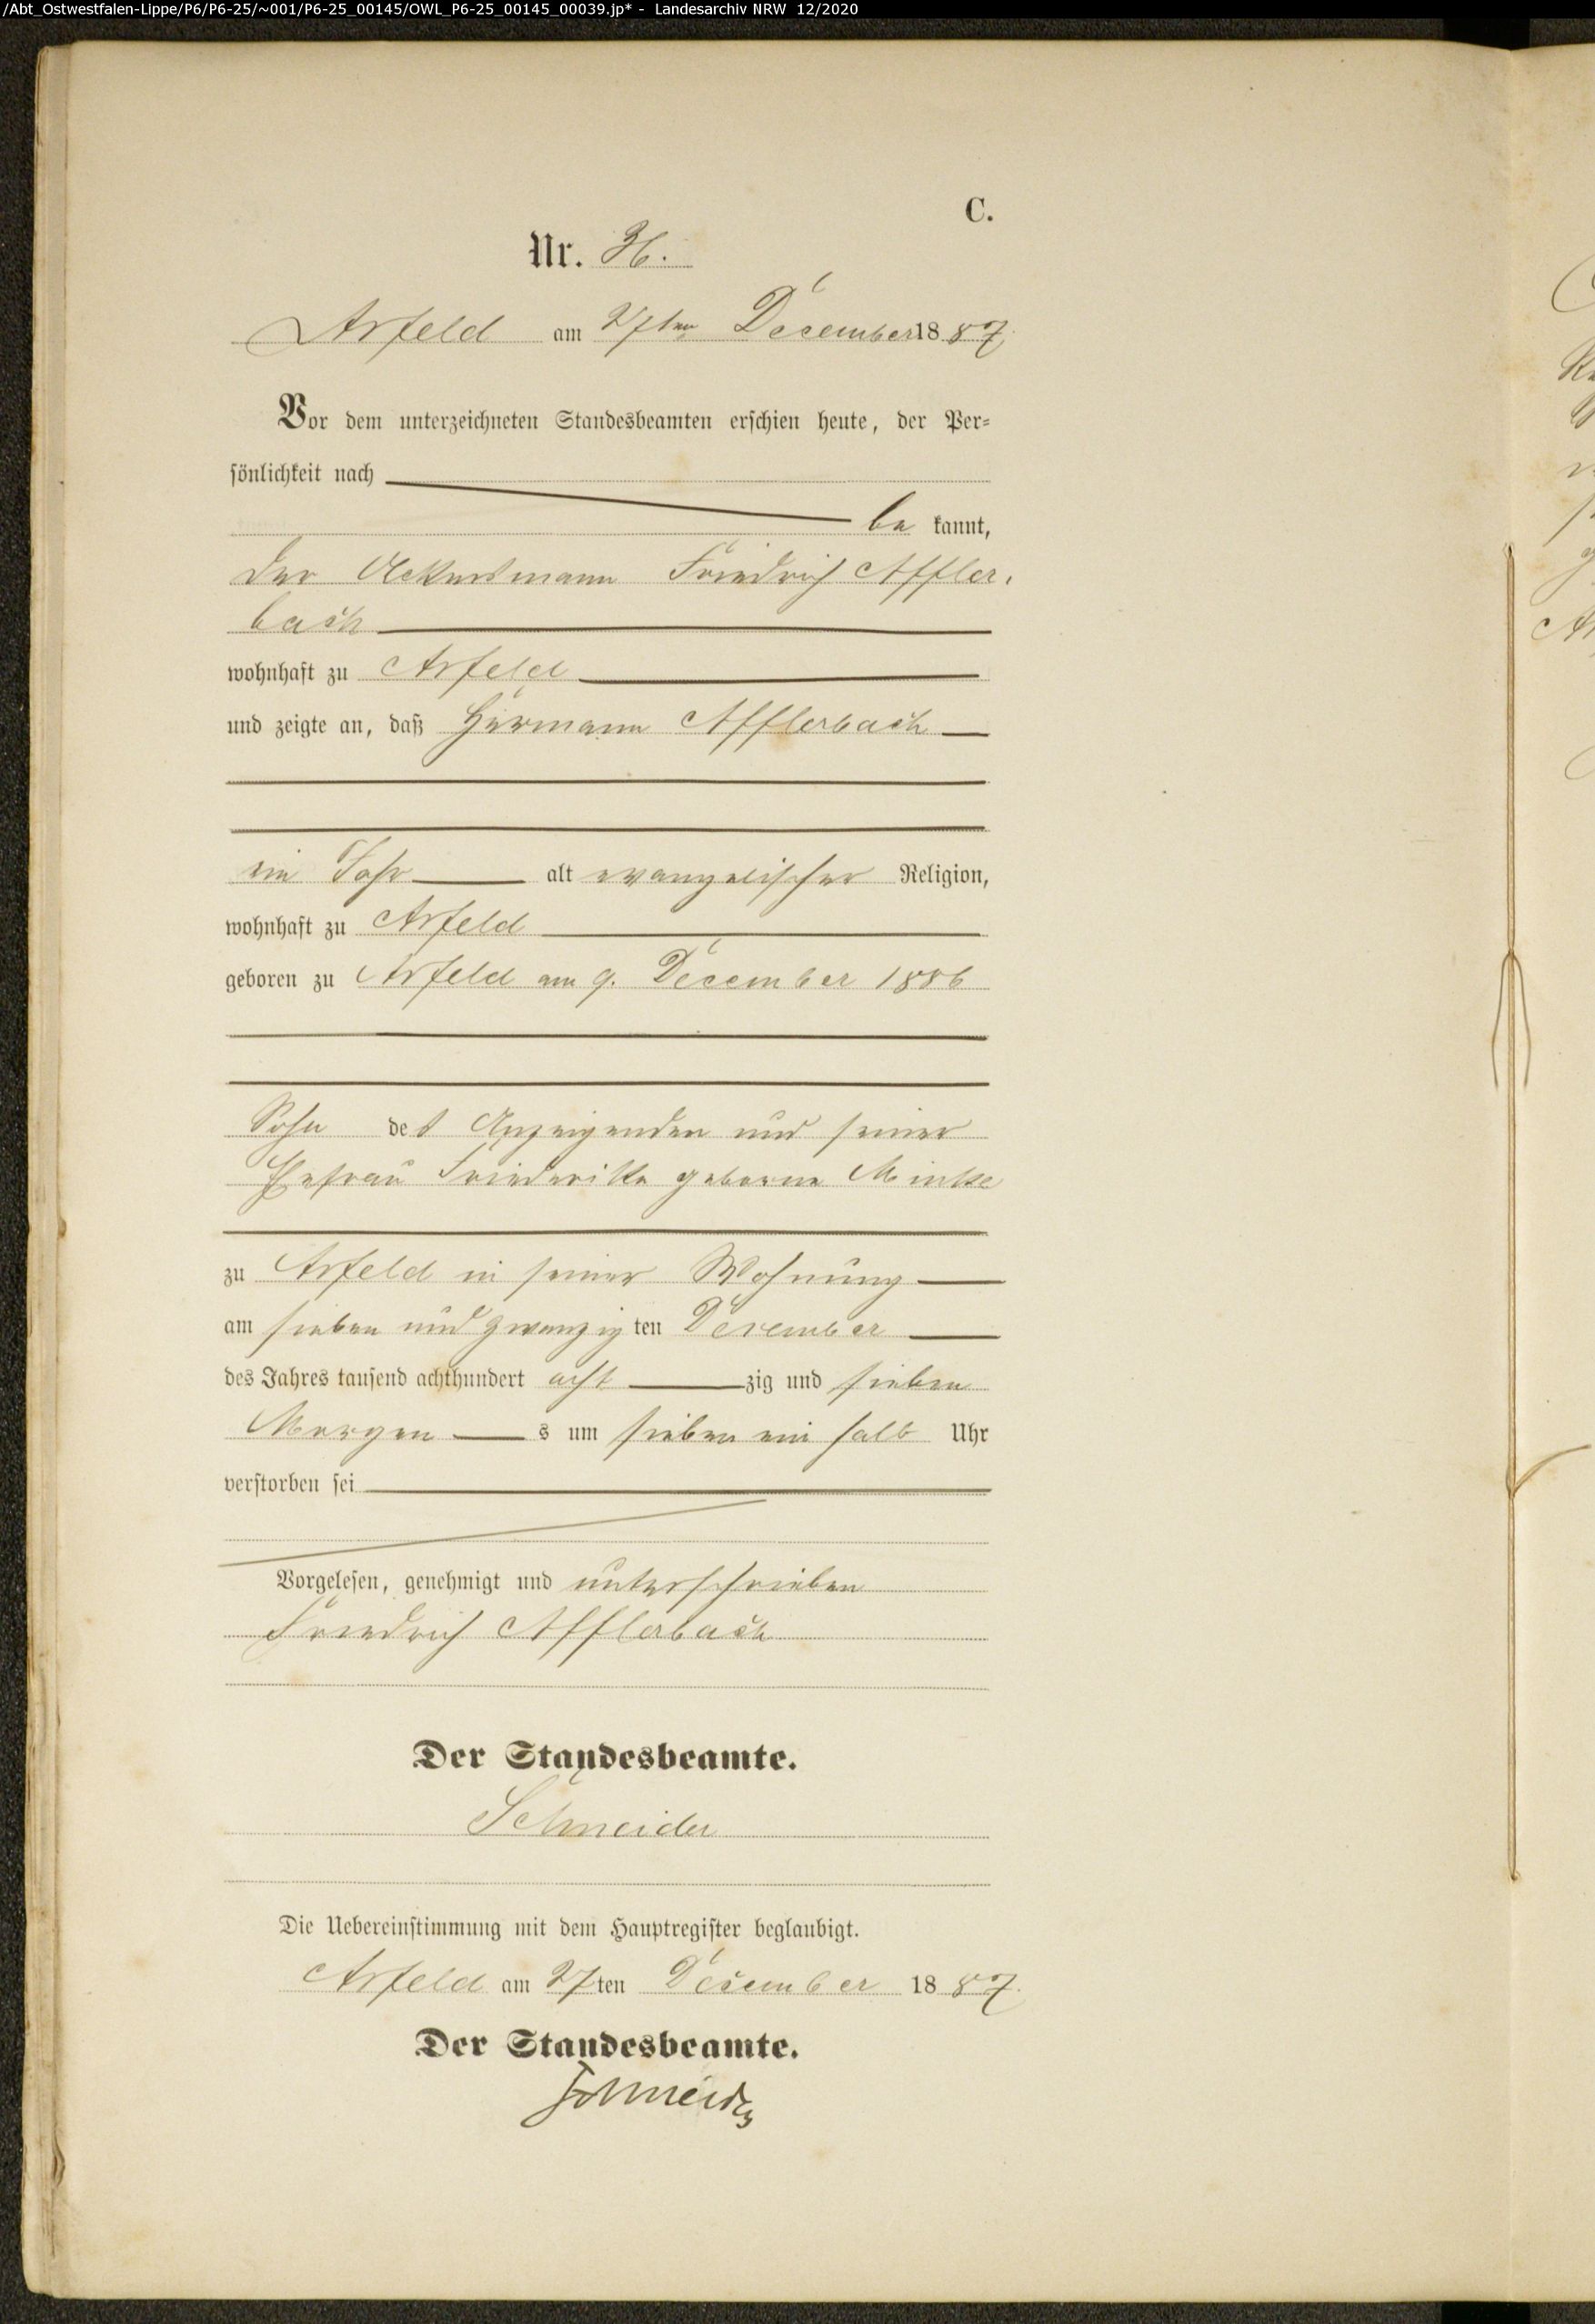 /Abt_Ostwestfalen-Lippe/P6/P6-25/~001/P6-25_00145/OWL_P6-25_00145_00039.jp* - Landesarchiv NRW 12/2020
C.
Nr. 36.
Arfeld am 27ten December 1887.
Vor dem unterzeichneten Standesbeamten erschien heute, der Per=
sönlichkeit nach
be kannt,
der Ackersmann Friedrich Affler-
bach
wohnhaft zu Arfeld
und zeigte an, daß Hermann Afflerbach
ein Jahr alt evangelischer Religion,
wohnhaft zu Arfeld
geboren zu Arfeld am 9. December 1886
Sohn des Anzeigenden und seiner
Ehefrau Friederike geborne Minke
zu Arfeld in seiner Wohnung
am sieben und zwanzig ten December
des Jahres tausend achthundert acht zig und sieben
Morgen s um sieben ein halb Uhr
verstorben sei
Vorgelesen, genehmigt und unterschrieben
Friedrich Afflerbach
Der Standesbeamte.
Schneider
Die Uebereinstimmung mit dem Hauptregister beglaubigt.
Arfeld am 27ten December 1887.
Der Standesbeamte.
Schneider